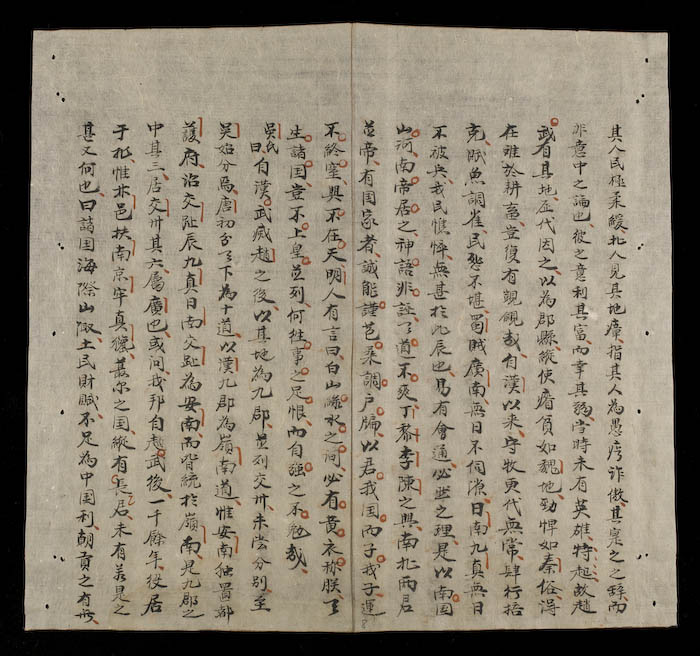 其人民極柔緩北人見其地瘴指其人為愚疼詐傲其寔之之辞而
非意中之論也彼之意利其富而幸其弱當時未有英雄特起故趙
武有其地歷代因之以為郡縣縱使瘠貧如魏地勁悍如秦俗得
在难於耕畜豈復有覬覦哉自漢以來守牧更代無常肆行掊
克賦魚調雀民愁不堪蜀賊廣南無日不伺隙日南九真無日
不被兵我民憔悴無甚於九辰也易有會通必然之理是以南国
山河南帝居之神語非誣天道不爽丁黎李陳之興南北兩居
並帝有国家者誠能謹苞桑調户牖以君我国而子我子運
不終窒興不在天明人有言曰白山水之间必有黄衣称朕天
生諸国豈不上皇並列何往事之足恨而自强之不勉哉
吳氏曰自漢武威趙之後以其地為九郡並列交州未尝分别至
吳始分焉唐初分天下為十道以漢九郡為嶺南道惟安南独置都
護府治交趾辰九真日南交趾為安南而皆統於嶺南是九郡之
中其三居交州其六屬廣也或问我邦自趙武後一千餘年役居
于北惟林邑扶南京牢真獵蕞尔之国縱有長居未有若是之
甚又何也曰諸国海際山陬土民財賦不足為中国利朝貢之有無